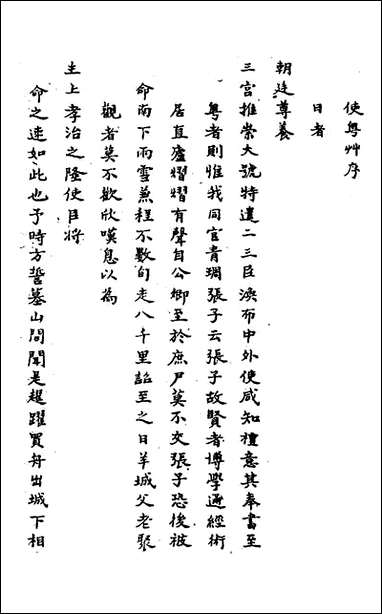 使粵艸序
日者
朝廷尊養
三宮推崇大號特遣二三臣渙布中外使咸知禮意其奉書至
粵者則惟我同官青琱張子云張子故賢者博學通經術
居直廬熠熠有聲自公卿至於庶尹莫不交張子恐後被
命南下雨雪兼程不數旬走八千里詔至之日羊城父老聚
觀者莫不歡欣嘆息以為
主上孝治之隆使臣將
命之速如此也予時方誓墓山間聞是趯躍買舟出城下相